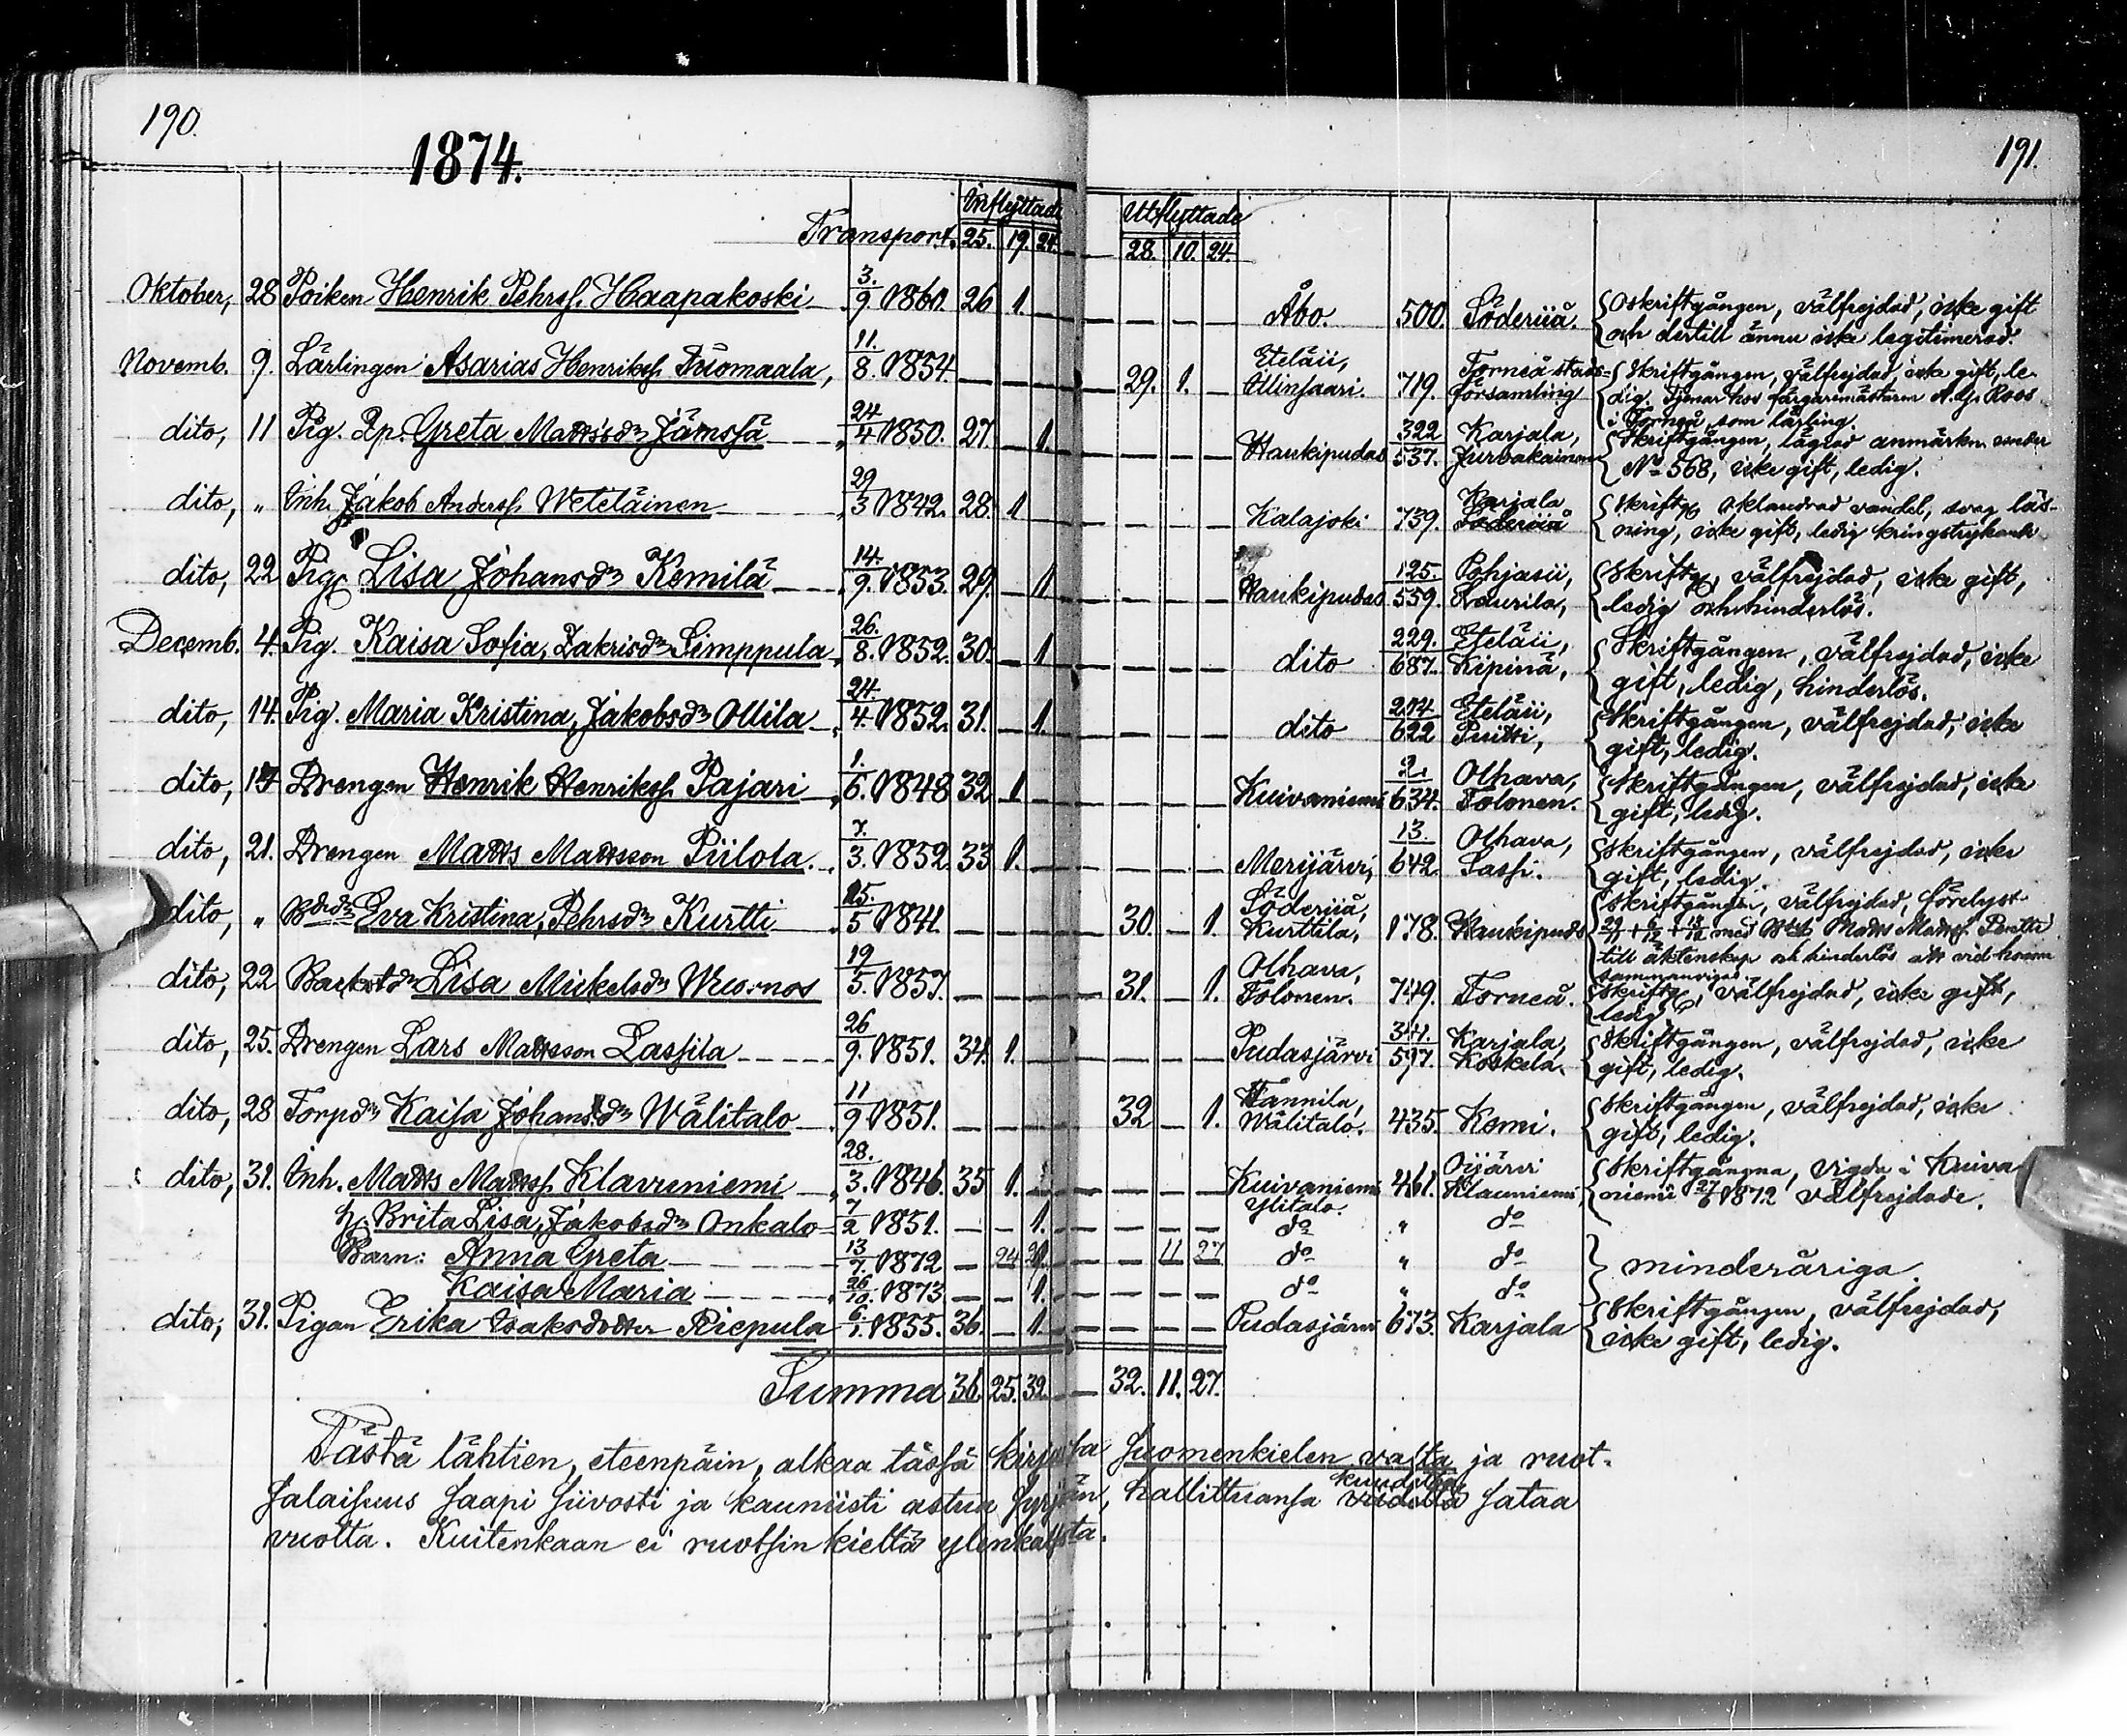 190.
1874.
191.
Inflyttade
Utflyttade
Transport. 25. 19. 24.
28. 10. 24.
Oktober, 28 Poiken Henrik Pehrss. Haapakoski 3./9. 1860. 26 1. Åbo. 500. Söderiiå. Oskriftgången, välfrejdad, icke gift
och dertill ännu icke legitimerad.
Novemb. 9. Lärlingen Asarias Henrikss. Tuomaala, 11./8. 1854. 29. 1. Eteläii, 719. Torneå stads-
församling Skriftgången, välfrejdad, icke gift, le-
dig. Tjenar hos färgaremästaren Roos
i Torneå som lärling.
dito, 11 Pig. Greta Mattsdr Jämssä 24/4 1850. 27. 1. Haukipudas 322/537. Karjala, Skriftgången, anmärkn. under
No 568, icke gift, ledig.
dito, " Inh. Jakob Anderss. Weteläinen 29/3 1842. 28. 1 Kalajoki 739. Karjala
Söderiiå Skriftg. oklandrad vandel, svag läs-
ning, icke gift, ledig kringstrykande
dito, 22 Pig. Lisa Johansdr Kemilä 14./9. 1853. 29. 1 Haukipudas 125./559. Pohjasii,
Laurila, Skriftg., välfrejdad, icke gift,
ledig och hinderlös.
Decemb. 4. Pig. Kaisa Sofia, Zakrisdr Simppula 26./8. 1852. 30. 1 dito 229./687. Eteläii,
Kipinä, Skriftgången, välfrejdad, icke
gift, ledig, hinderlös.
dito, 14. Pig. Maria Kristina, Jakobsdr Ollila 24./4. 1852. 31. 1. dito 622 Eteläii,
Skriftgången, välfrejdad, icke
gift, ledig.
dito, 17 Drengen Henrik Henrikss. Pajari 1./6. 1848 32 1 Kuivaniemi 2./634. Olhava,
Tolonen. Skriftgången, välfrejdad, icke
gift, ledig.
dito, 21. Drengen Matts Mattsson Piilola. 7./3. 1852. 33 1. Merijärvi, 13./642. Olhava,
Sassi. Skriftgången, välfrejdad, icke
gift, ledig.
dito, " Bdedr Eva Kristina, Pehrsdr Kurtti 15./5 1841 30. 1. Söderiiå,
Kurttila, 178. Haukipudas Skriftgången, välfrejdad, förelyst
29/11 + 6/12 + 13/12 med Matts Mattss. Pentti
till äktenskap och hinderlös att vid honom
sammanvigas.
dito, 22 Lisa Mickelsdr Wuornos 19/5. 1857. 31. 1. Olhava,
Tolonen. 749. Torneå. Skriftg., välfrejdad, icke gift,
ledig.
dito, 25. Drengen Lars Mattsson Lassila 26/9. 1851. 34. 1. Pudasjärvi 341./597. Karjala,
Koskela. Skriftgången, välfrejdad, icke
gift, ledig.
dito, 28 Torpdr Kaisa Johansdr Wälitalo 11/9 1851. 32 1. Hannila,
Wälitalo. 435. Kemi. Skriftgången, välfrejdad, icke
gift, ledig.
dito, 31. Inh. Matts Mattss. Klavuniemi 28./3. 1846. 35 1. Kuivaniemi
Ylitalo. 461. Oijärvi
Klauniemi, Skriftgångna, vigda i Kuiva-
niemi 27/6 1872 välfrejdade.
h. Brita Lisa, Jakobsdr Onkalo 7/2 1851. 1. do " do
Barn: Anna Greta 13/7. 1872 24 11 27 do " do minderåriga.
Kaisa Maria 26/10. 1873. 1. do " do
dito, 31. Pigan Erika Isaksdotter Riepula 6./1. 1855. 36. 1. Pudasjärvi 673. Karjala Skriftgången, välfrejdad,
icke gift, ledig.
Summa 36. 25. 32. 32. 11. 27.
Tästä lähtien, eteenpäin, alkaa tässä kirjassa Suomenkielen valta ja ruot-
salaisuus saapi siivosti ja kauniisti astua syrjään, hallittuansa viidettä kuudetta sataa
vuotta. Kuitenkaan ei ruotsin kieltä ylenkatsota.